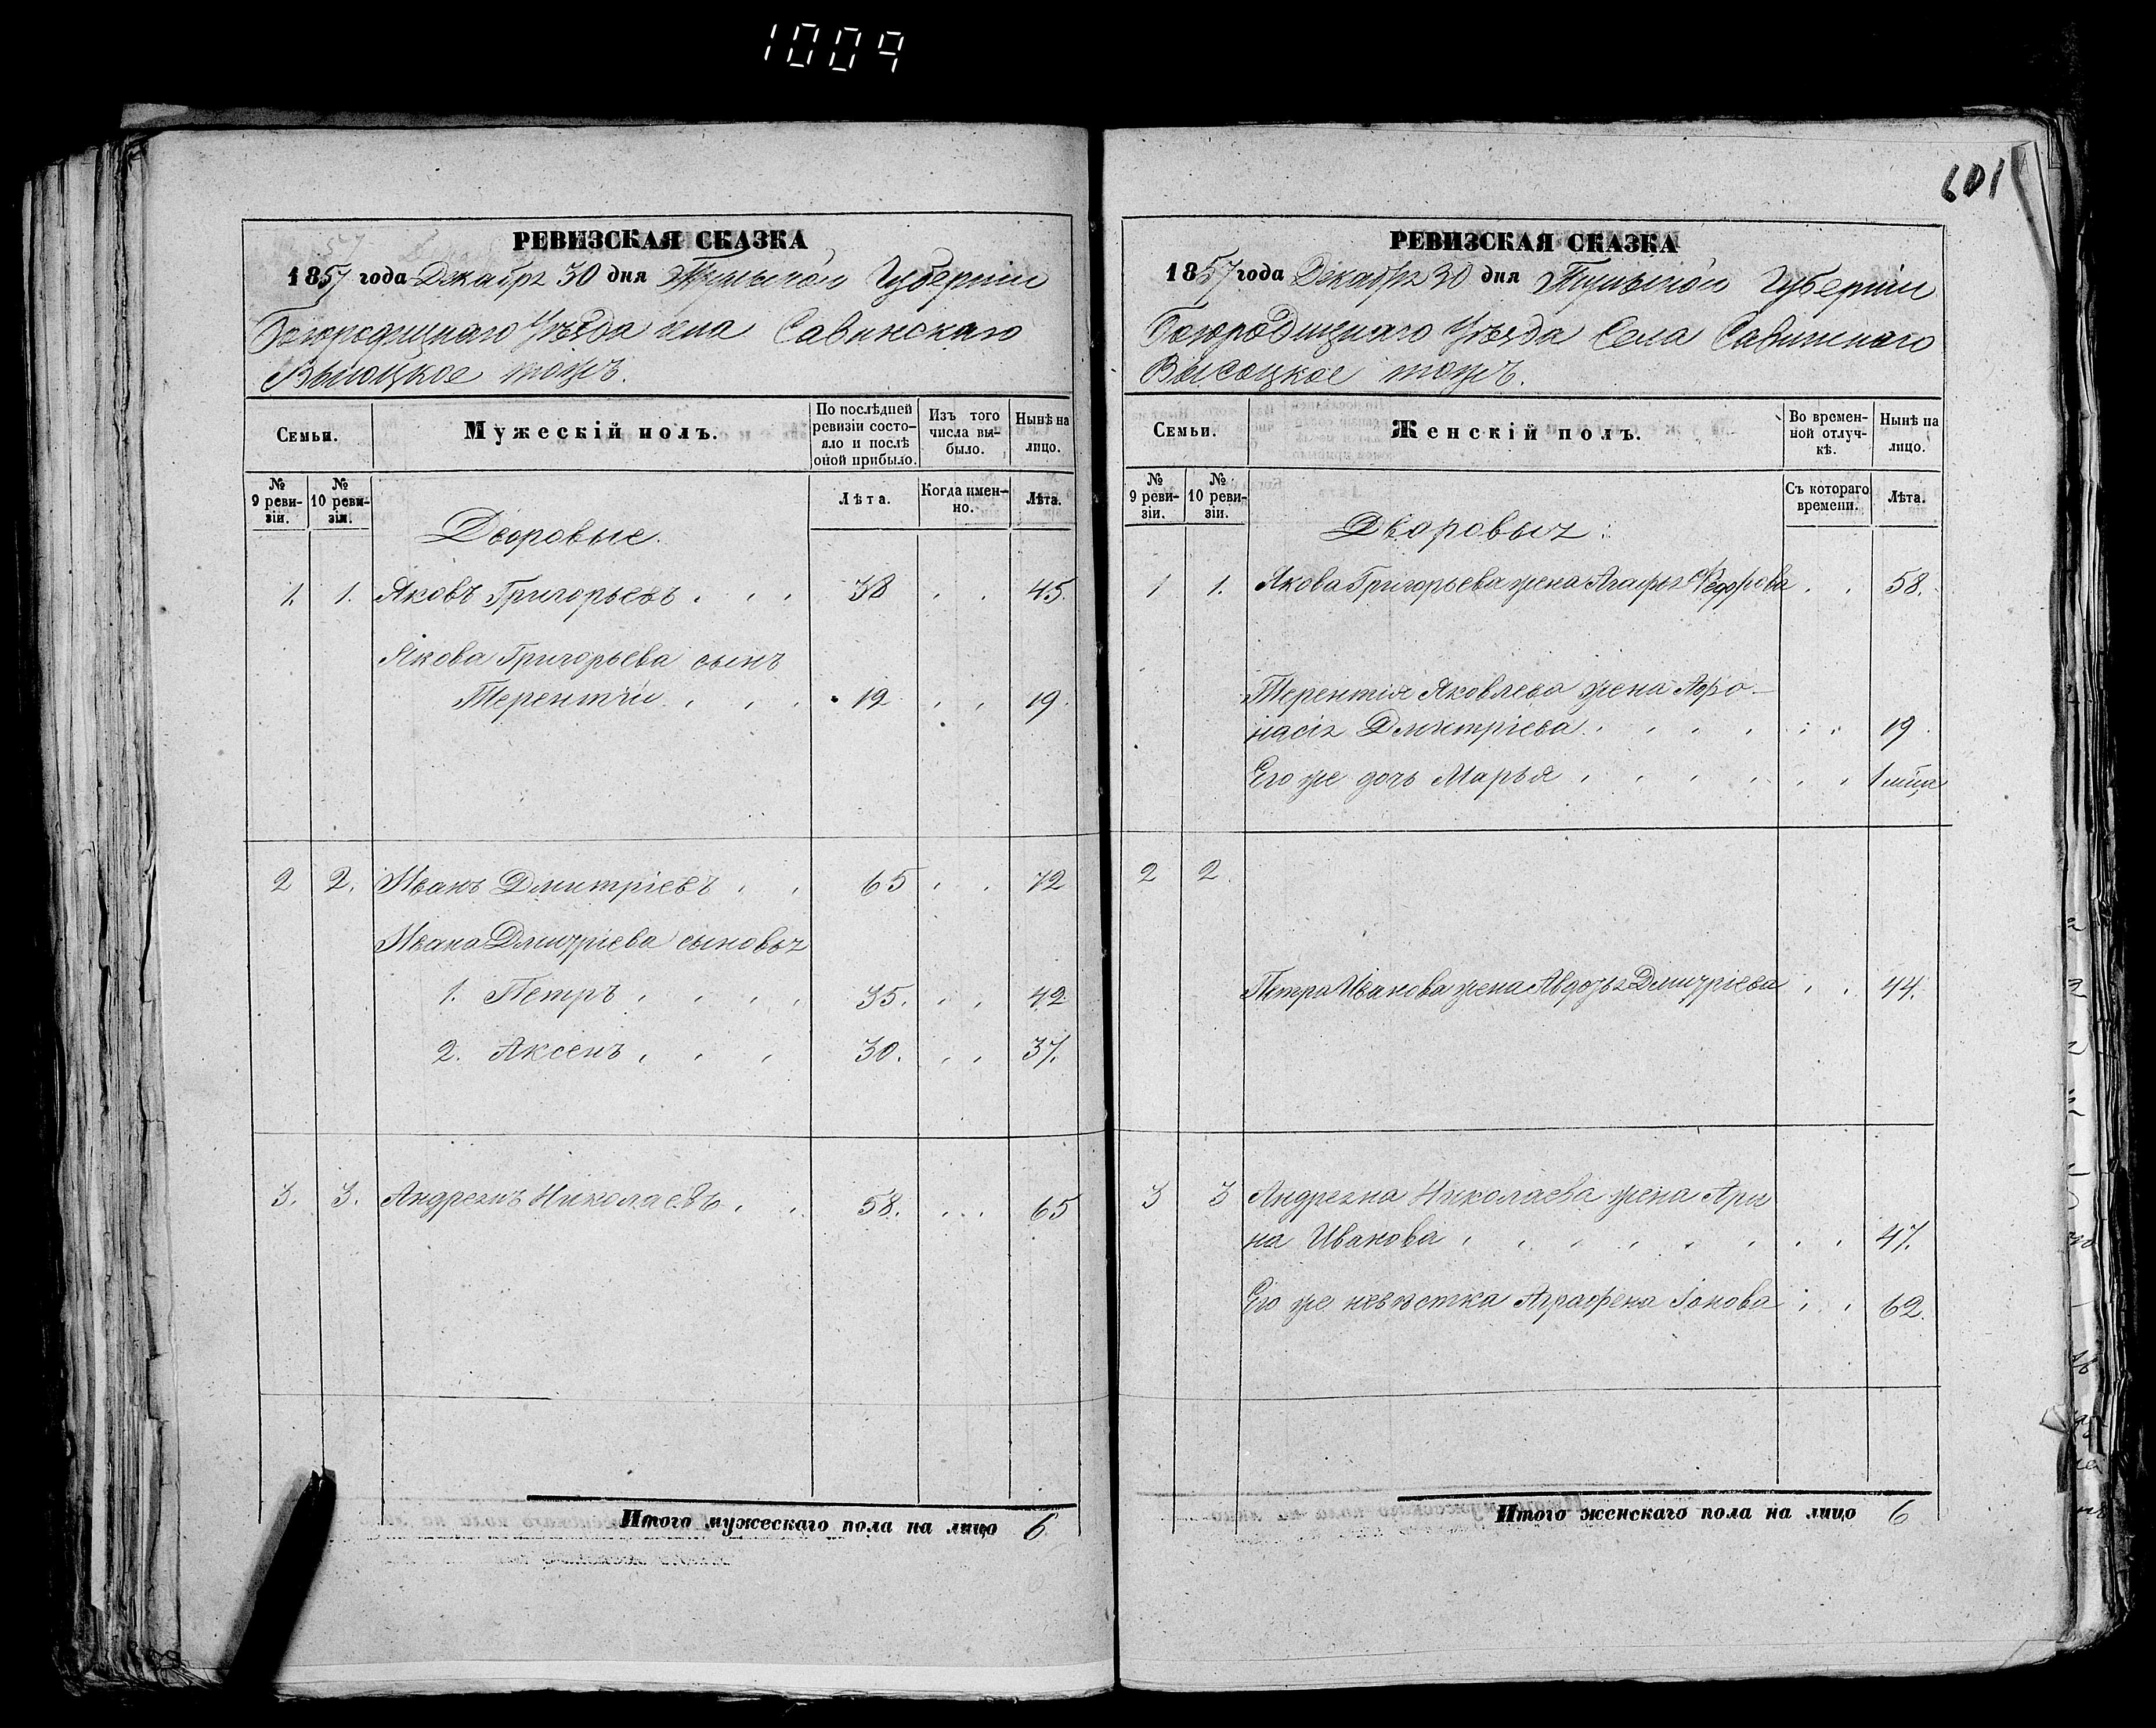 1009
601
РЕВИЗСКАЯ СКАЗКА
1857 года Декабря 30 дня Тульской Губерніи
Богородицкаго Уѣзда села Савинскаго
Высоцкое тожъ.
Семьи.
Мужескій полъ.
По послѣдней ревизіи состояло и послѣ оной прибыло.
Изъ того числа выбыло.
Нынѣ на лицо.
№ 9 ревизіи.
№ 10 ревизіи.
Лѣта.
Когда именно.
Лѣта.
Дворовые.
1. 1. Яковъ Григорьевъ 38 45.
Якова Григорьева сынъ
Терентій 12 19.
2 2. Иванъ Дмитріевъ 65 72
Ивана Дмитріева сыновья
1. Петръ 35. 42
2. Аксенъ 30. 37.
3. 3. Андреянъ Николаевъ 58. 65
Итого мужескаго пола на лицо 6
РЕВИЗСКАЯ СКАЗКА
1857 года Декабря 30 дня Тульской Губерніи
Богородицкаго Уѣзда Села Савинскаго
Высоцкое тожъ.
Семьи.
Женскій полъ.
Во временной отлучкѣ.
Нынѣ на лицо.
№ 9 ревизіи.
№ 10 ревизіи.
Съ котораго времени.
Лѣта.
Дворовыя:
1 1. Якова Григорьева жена Агафья Федорова 58.
Терентія Яковлева жена Афро-
насія Дмитріева 19.
Его же дочь Марья 1 мѣца
2 2.
Петра Иванова жена Авдотья Дмитріева 44.
3 3 Андреяна Николаева жена Ари
на Иванова 47.
Его же невѣстка Аграфена Іонова 62.
Итого женскаго пола на лицо 6